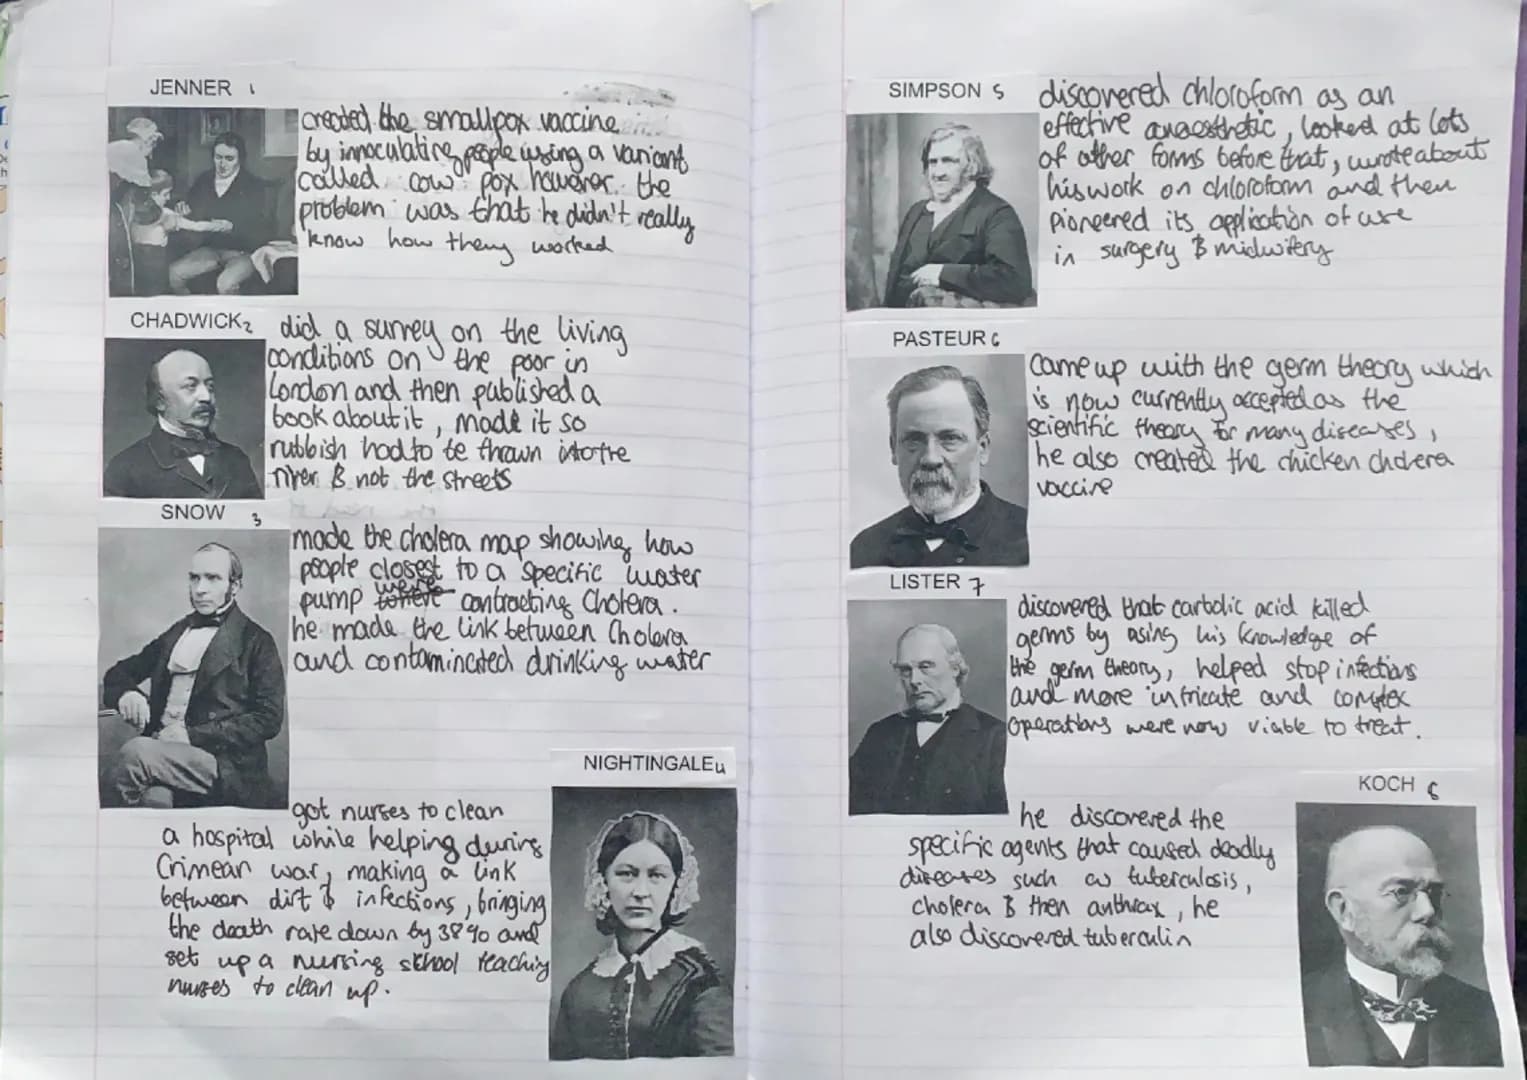 JENNER 1
created the smallpox vaccine
by innoculating people using a variant
called cow pox however the
problem was that he didn't really
know how theny worked
CHADWICK 2
did a survey on the living
conditions on the poor in
London and then published a
book about it, made it so
rubbish had to be thrown into the
river & not the streets
SNOW 3
made the cholera map showing how
people closest to a specific water
pump were contracting Cholera.
he made the link between Cholera
and contaminated drinking water
NIGHTINGALE 4
got nurses to clean
a hospital while helping during
Crimean war, making a link
between dirt & infections, bringing
the death rate down by 38% and
set up a nursing school teaching
nurses to clean up.
SIMPSON 5
discovered chloroform as an
effective anaesthetic, looked at lots
of other forms before that, wrote about
his work on chloroform and then
pioneered its application of use
in surgery & midwifery
PASTEUR 6
came up with the germ theory which
is now currently accepted as the
scientific theory for many diseases,
he also created the chicken cholera
vaccine
LISTER 7
discovered that carbolic acid killed
germs by using his knowledge of
the germ theory, helped stop infections
and more intricate and complex
operations were now viable to treat.
KOCH
he discovered the
specific agents that caused deadly
diseases such as tuberculosis,
cholera & then anthrax, he
also discovered tuberculin